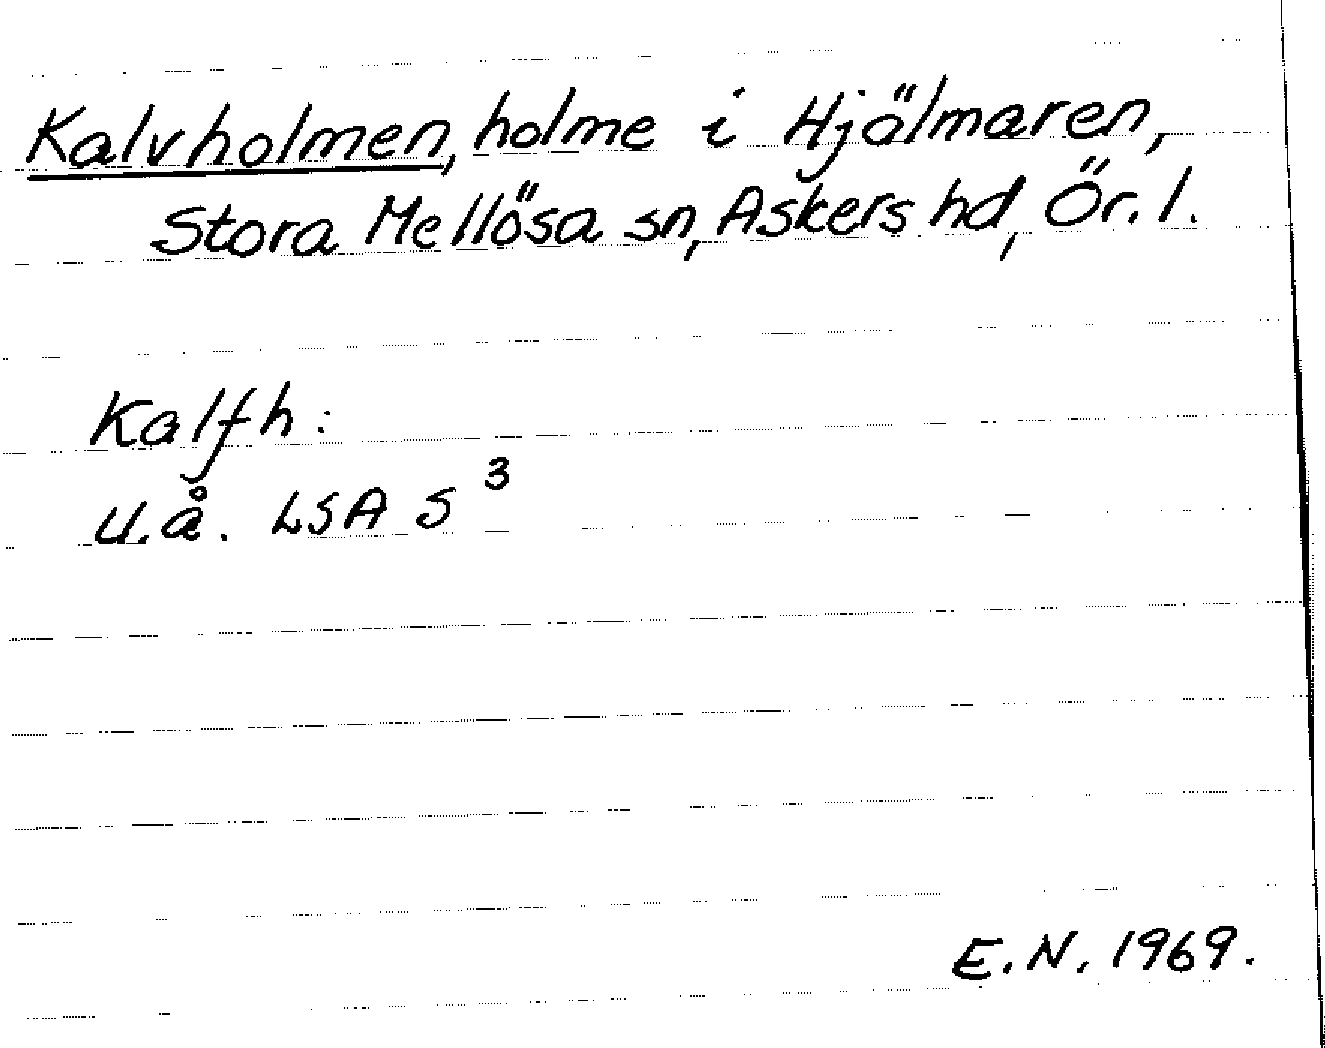 Kalvholmen, holme i Hjälmaren,
Stora Mellösa sn, Askers hd, Ör. l.
Kalfh:
u.å. LSA S 3
E.N. 1969.